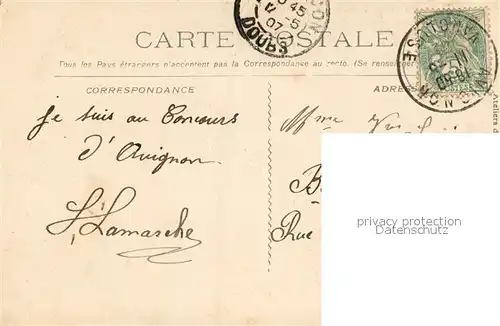 CARTE POSTALE
Tous les Pays étrangers n'acceptent pas la Correspondance au recto. (Se renseigner
CORRESPONDANCE
ADRES
je suis au Concours
d'Avignon
Lamarche
Mme
B
Rue
45
5
07
DOUBS
AVIGNON
VAUCLUSE
privacy protection
Datenschutz